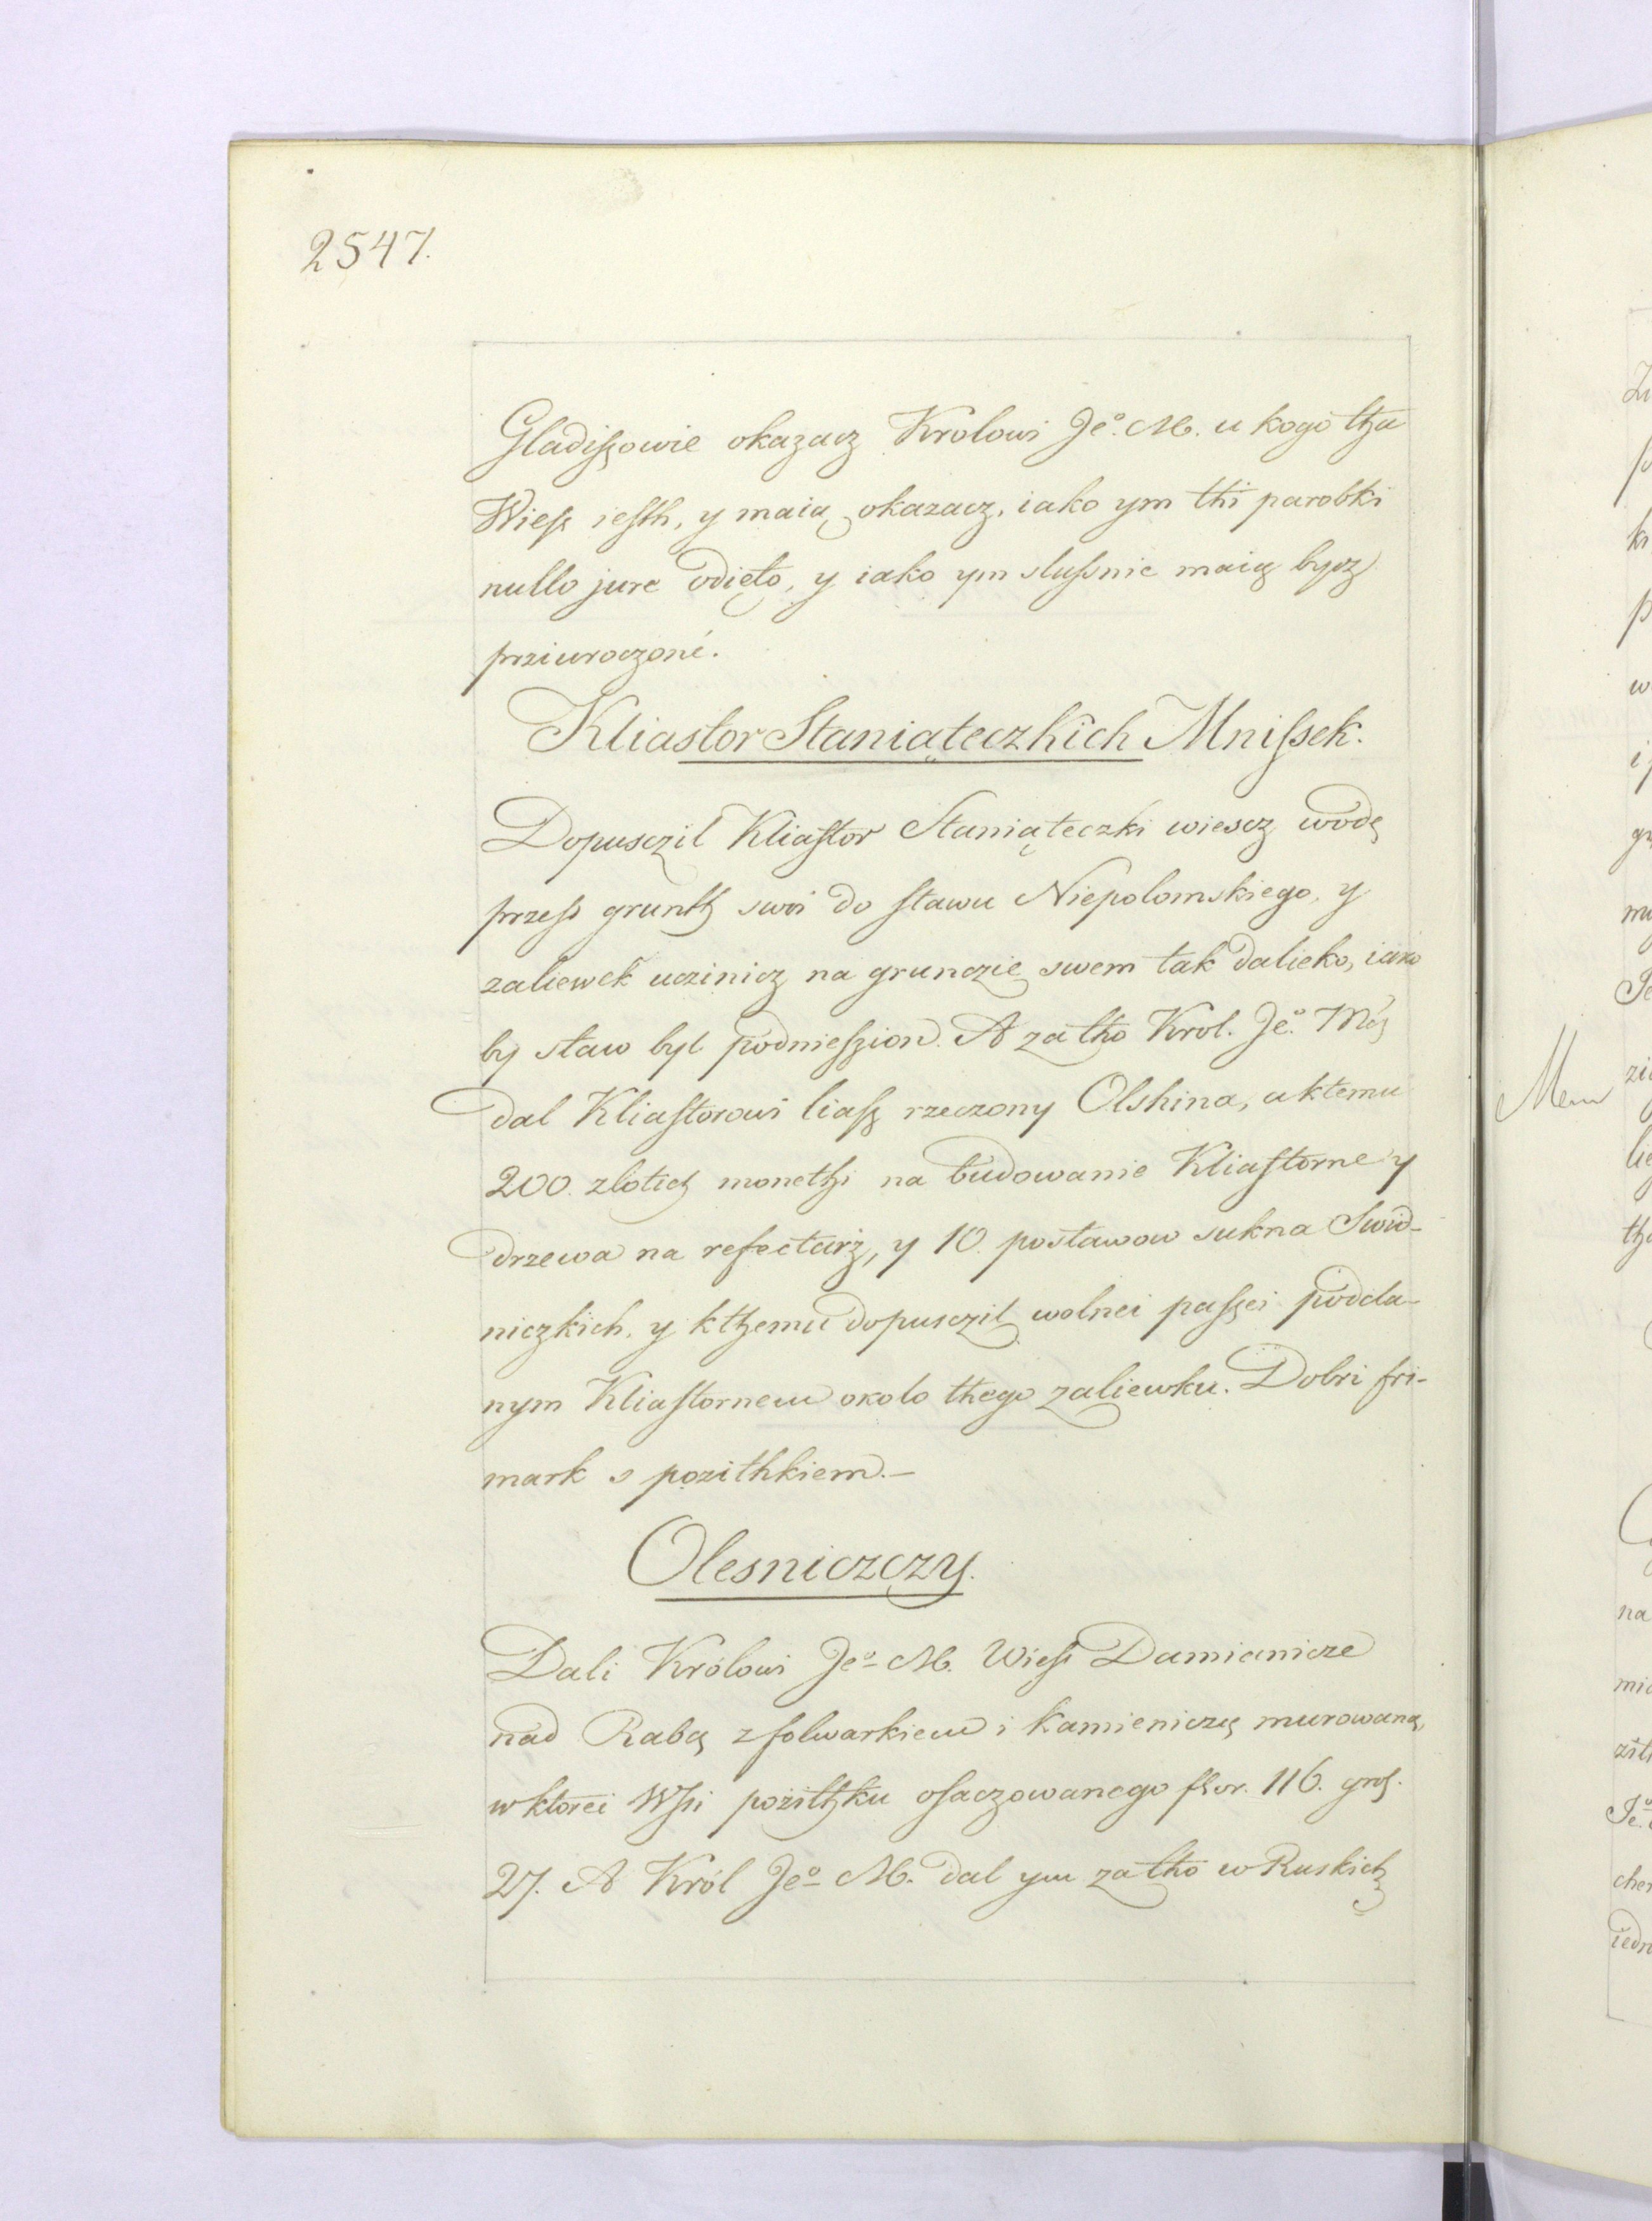 2547.
Gladiszowie okazacz Krolowi Jeº. M. u kogo tha
Wiesz iesth, y maią okazacz, iako ym thi parobki
nullo jure odięto, y iako ym slussnie maią bycz
prziwroczone.
Kliastor Staniąteczkich Mnissek.
Dopusczil Kliastor Staniąteczki wiescz wodę
przess grunth swoi do stawu Niepolomskiego, y
zaliewek uczinicz na grunczie swem tak dalieko, iako
by staw byl podniesszion. A za tho Krol. Jeº. Mcz
dal Kliastorowi liass rzeczony Olshina, a ktemu
200. zlotich monethi na budowanie Kliastorne y
drzewa na refectarz, y 10. postawow sukna Swid-
niczkich. y kthemu dopusczil wolnei passei podda-
nym Kliastornem okolo thego zaliewku. Dobri fri-
mark s pozithkiem.—
Olesniczczy.
Dali Królowi Jeº M. Wiess Damianicze
nad Rabą z folwarkiem i kamieniczę murowaną,
w ktorei Wsi pozithku osaczowanego flor. 116. gros.
27. A Król Jeº M. dal ym za tho w Ruskich